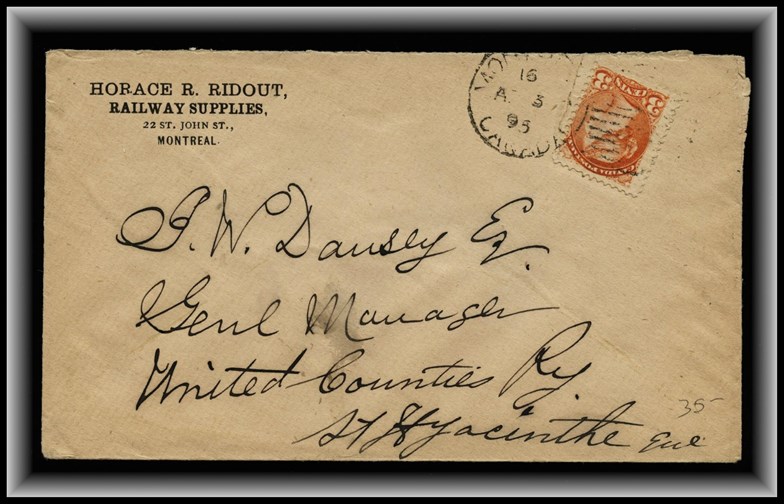 HORACE R. RIDOUT,
RAILWAY SUPPLIES,
22 ST. JOHN ST.,
MONTREAL.
16
3
95
CANADA
3 3
W. Dausey Eq.
Genl Manager
United Counties Ry.
St Hyacinthe Que
35-